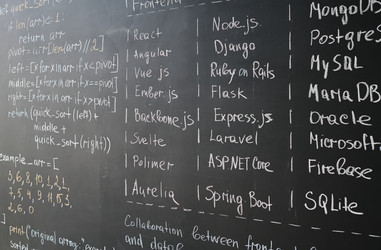 def quick_sort(
if len(arr) <= 1:
return arr
pivot = arr[len(arr)//2]
left = [x for x in arr if x < pivot]
middle = [x for x in arr if x == pivot]
right = [x for x in arr if x > pivot]
return (quick_sort (left) +
middle +
quick_sort (right))
example_arr = [
3, 6, 8, 10, 1, 2, 1,
7, 5, 4, 9, 11, 15, 3,
2, 6, 0
]
print("original array:"
sorted
Frontend
React
Angular
Vue js
Ember.js
Backbone.js
Svelte
Polimer
Aurelia
Node.js
Django
Ruby on Rails
Flask
Express.js
Laravel
ASP.NET Core
Spring Boot
MongoDB
PostgreS
MySQL
MariaDB
Oracle
Microsoft
Firebase
SQLite
Collaboration between fronte
and datab